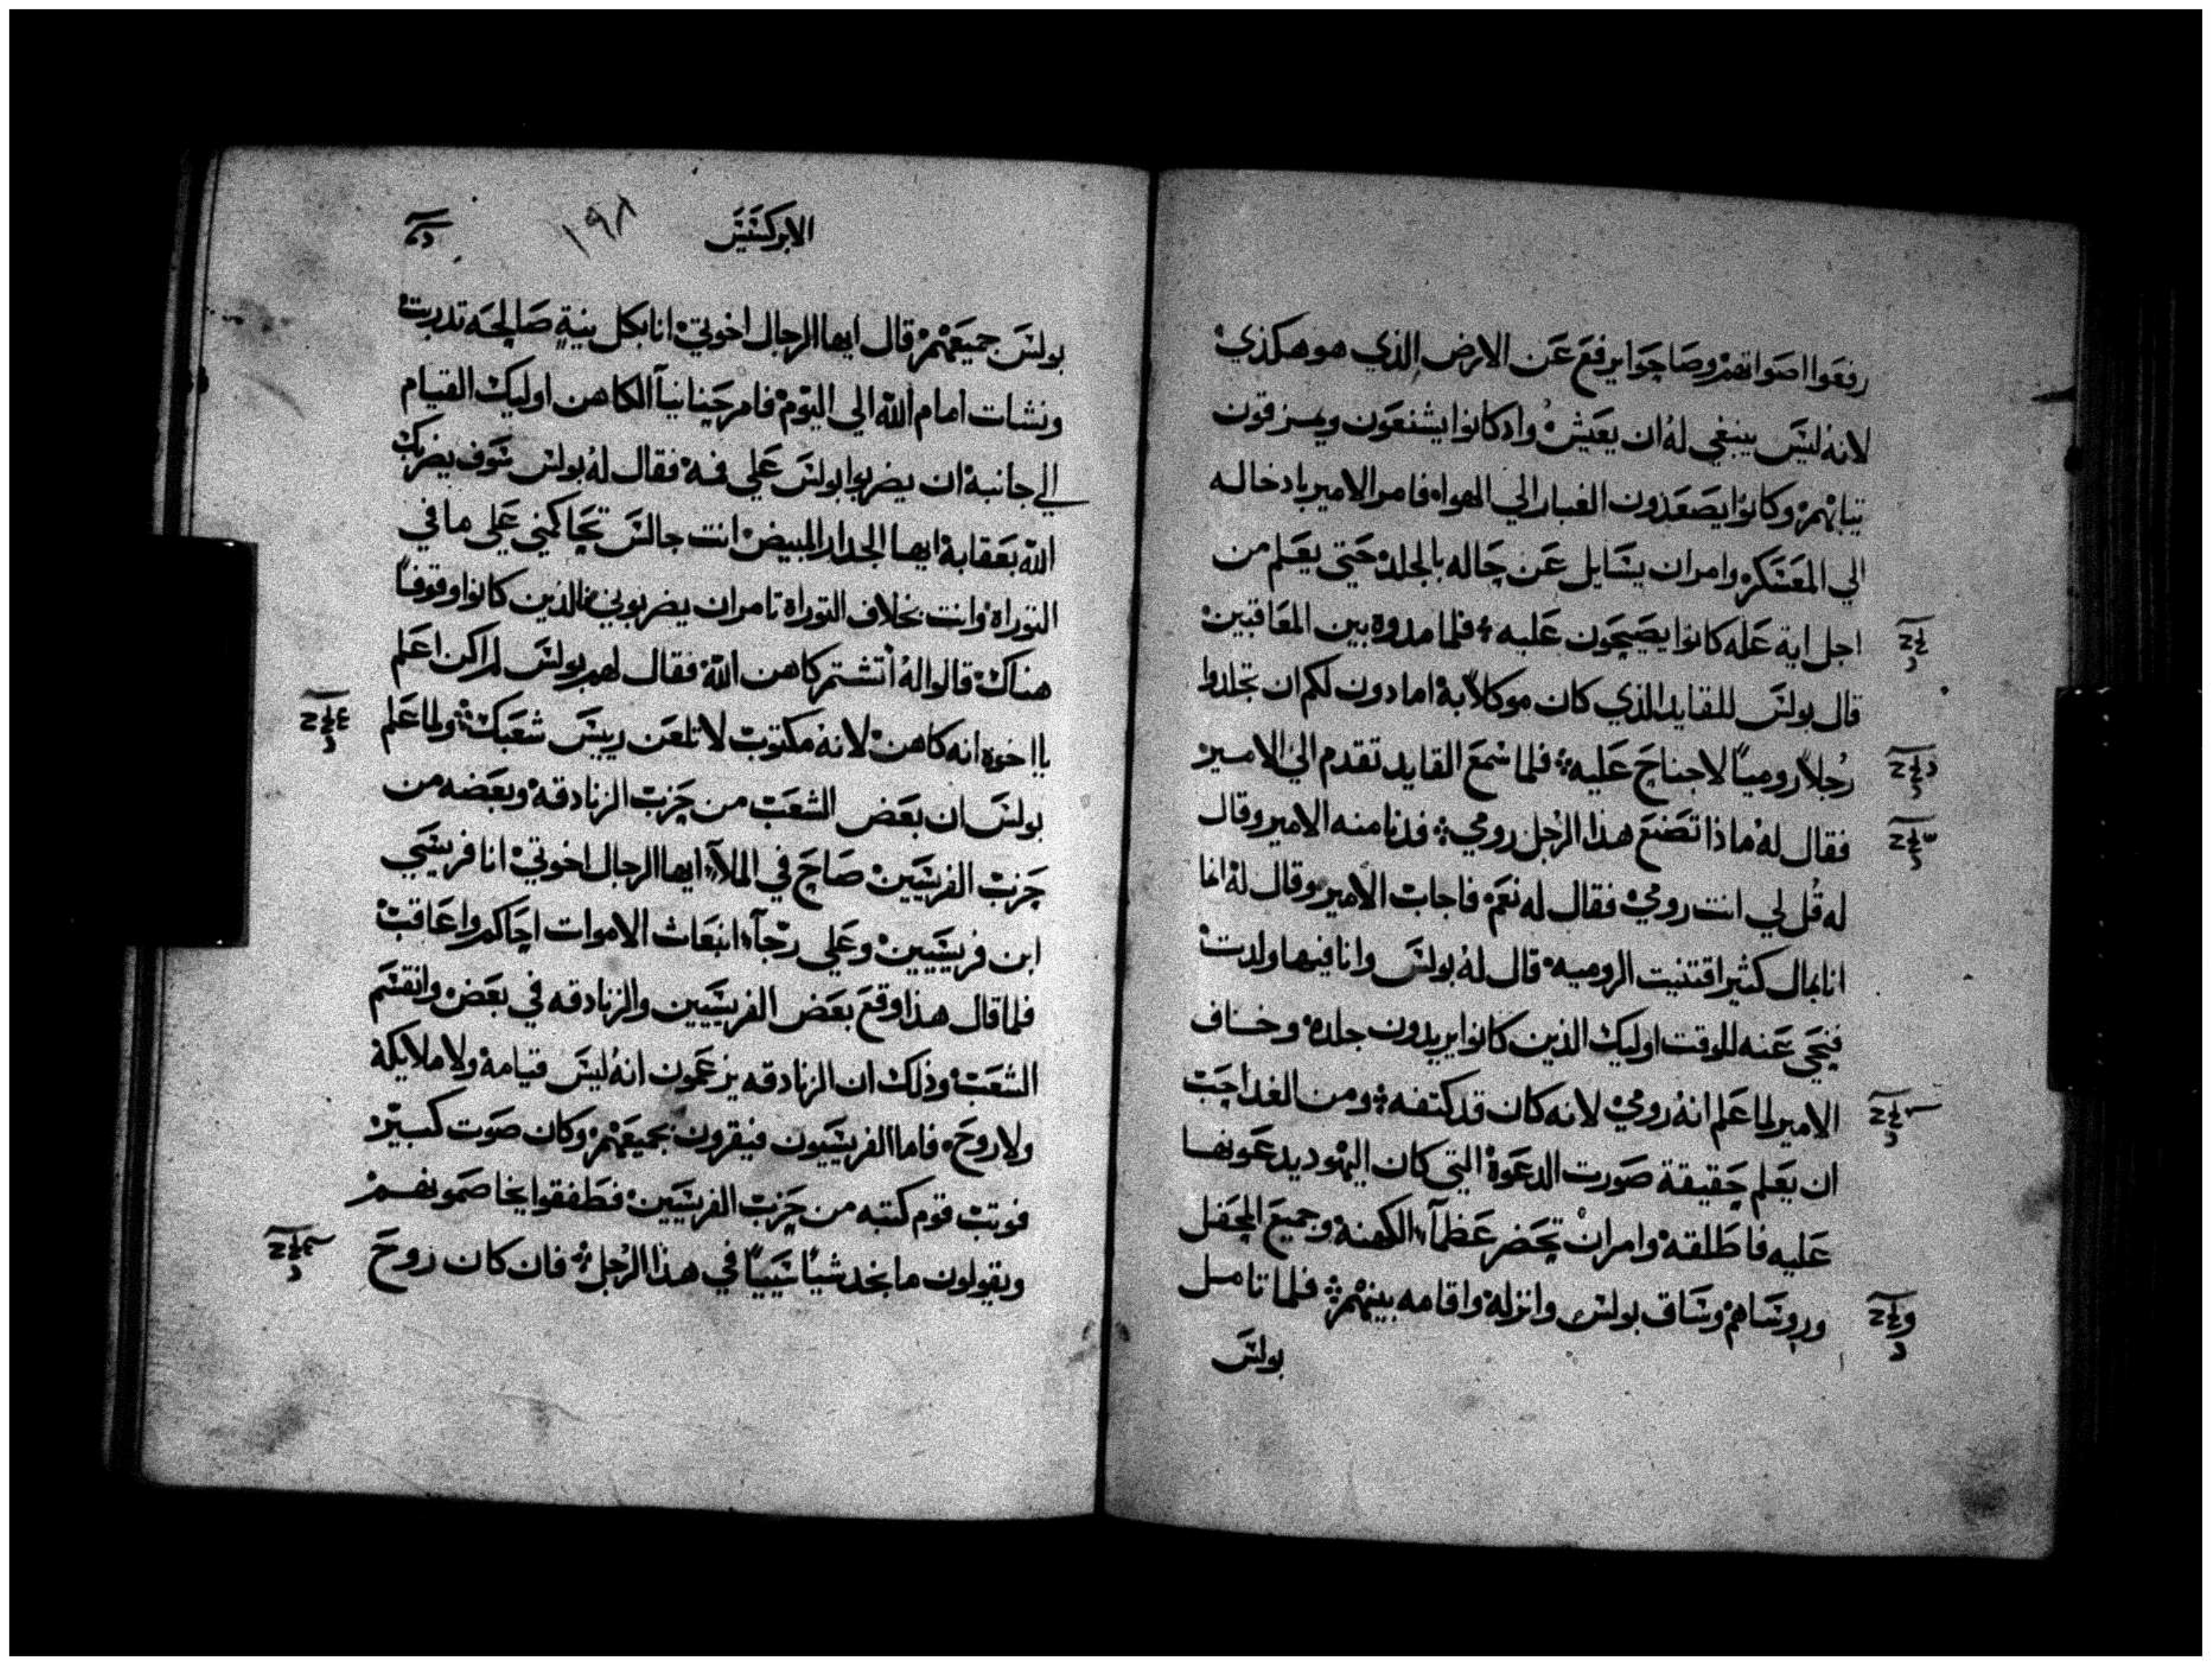 رفعوا اصواتهم وصاحوا يرفع عن الارض الذي هو هكذي
لانه ليس ينبغي له ان يعيش واد كانوا يشنعون ويمزقون
تيابهم وكانوا يصعدون الغبار الي الهواء فامر الامير بادخاله
الي المعسكر وامر ان يسايل عن حاله بالجلد حتي يعلم من
اجل اية عله كانوا يصيحون عليه فلما مدوه بين المعاقبين
قال بولس للقايد الذي كان موكلاً به اما دون لكم ان تجلدوا
رجلاً روميًا لا جناح عليه فلما سمع القايد تقدم الي الامير
فقال له ماذا تصنع هذا الرجل رومي فدنا منه الامير وقال
له قل لي انت رومي فقال له نعم فاجاب الامير وقال له انما
انا بمال كثير اقتنيت الروميه قال له بولس وانا فيها ولدت
فتنحي عنه للوقت اوليك الذين كانوا يريدون جلده وخاف
الامير لما علم انه رومي لانه كان قد كتفه ومن الغد احب
ان يعلم حقيقة صورت الدعوة التي كان اليهود يدعونها
عليه فاطلقه وامر ان تحضر عظمآء الكهنة وجميع المحفل
وروساهم وساق بولس وانزله واقامه بينهم فلما تامل
بولس
الابركسيس ١٩٨
بولس جميعهم قال ايها الرجال اخوتي انا بكل نيةٍ صالحه تدبرت
ونشات امام الله الي اليوم فامر حنانيآ الكاهن اوليك القيام
الي جانبه ان يضربوا بولس علي فمه فقال له بولس سوف يضربك
الله بعقابه ايها الجدار المبيض انت جالس تحاكمني علي ما في
التوراه وانت بخلاف التوراه تامر ان يضربوني فالذين كانوا وقوفًا
هناك قالوا له أتشتم كاهن الله فقال لهم بولس لم اكن اعلم
يا اخوه انه كاهن لانه مكتوب لا تلعن رييس شعبك ولما علم
بولس ان بعض الشعب من حزب الزنادقه وبعضه من
حزب الفريسيين صاح في الملآء ايها الرجال اخوتي انا فريسي
ابن فريسيين وعلي رجآء انبعاث الاموات احاكم واعاقب
فلما قال هذا وقع بعض الفريسيين والزنادقه في بعض وانقسم
الشعب وذلك ان الزنادقه يزعمون انه ليس قيامة ولا ملايكة
ولا روح فاما الفريسيون فيقرون بجميعهم وكان صوت كبير
فوتب قوم كتبه من حزب الفريسيين فطفقوا يخاصمونهم
ويقولون ما نجد شيًا سييًا في هذا الرجل فان كان روح